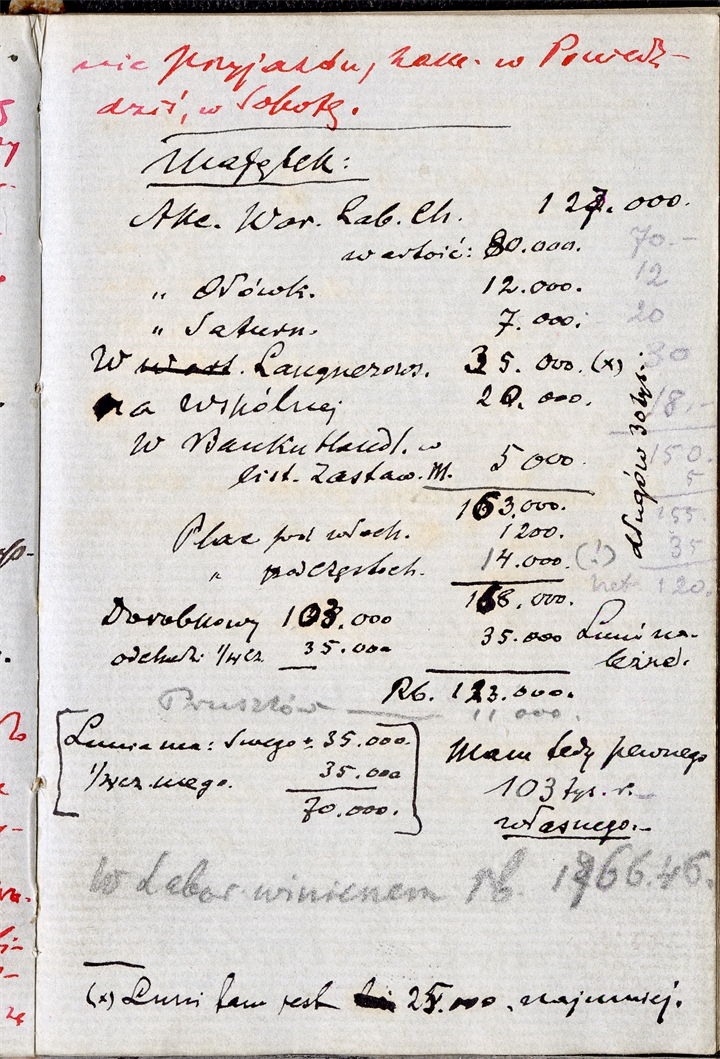 nie przyjazdu, kom. w Powiedz-
dziś, w Sobotę.
Majątek:
Akc. War. Lab. Ch. 127.000.
wartość: 80.000.
„ Ołówk. 12.000.
„ Saturn. 7.000.
W Langnerows. 35.000. (x)
na Wspólnej 20.000.
W Banku Handl. w
list. Zastaw. M. 5000
163.000.
Plac pod włoch. 1200.
„ pod częstoch. 14.000. (!)
168.000.
Dorobkowy 103.000
odchodzi 1/4cz 35.000
35.000 Luni na-
leżne.
Rb. 123.000.
Pruszków — 11 000.
Lunia ma: swego ± 35.000.
1/4cz. mego. 35.000
70.000.
Mam tedy pewnego
103 tys. r.
własnego.
W Labor. winienem rb. 66.46.
(x) Luni tam jest 25.000, najmniej.
długów 30 tys.
70.-
12
20
30
18.-
150.
5
155.
35
net 120.